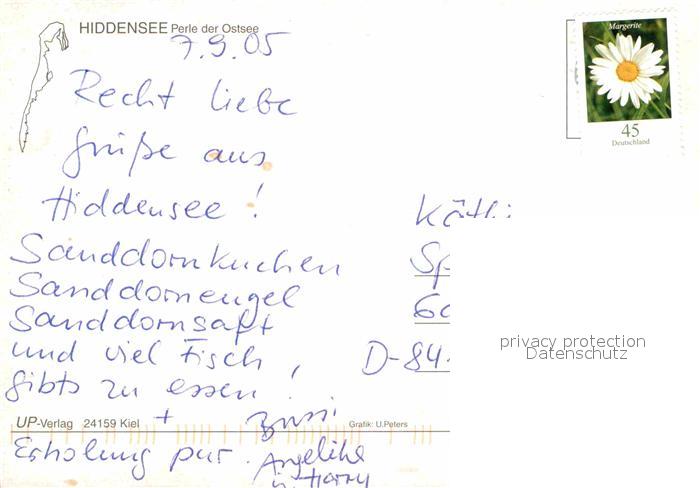 HIDDENSEE Perle der Ostsee
7.9.05
Recht liebe
Grüße aus
Hiddensee!
Sanddornkuchen
Sanddornengel
Sanddornsaft
und viel Fisch,
gibts zu essen!
+
Erholung pur.
Bussi
Angelika
u. Harry
UP-Verlag 24159 Kiel
Grafik: U.Peters
Margerite
45
Deutschland
D-84
privacy protection
Datenschutz